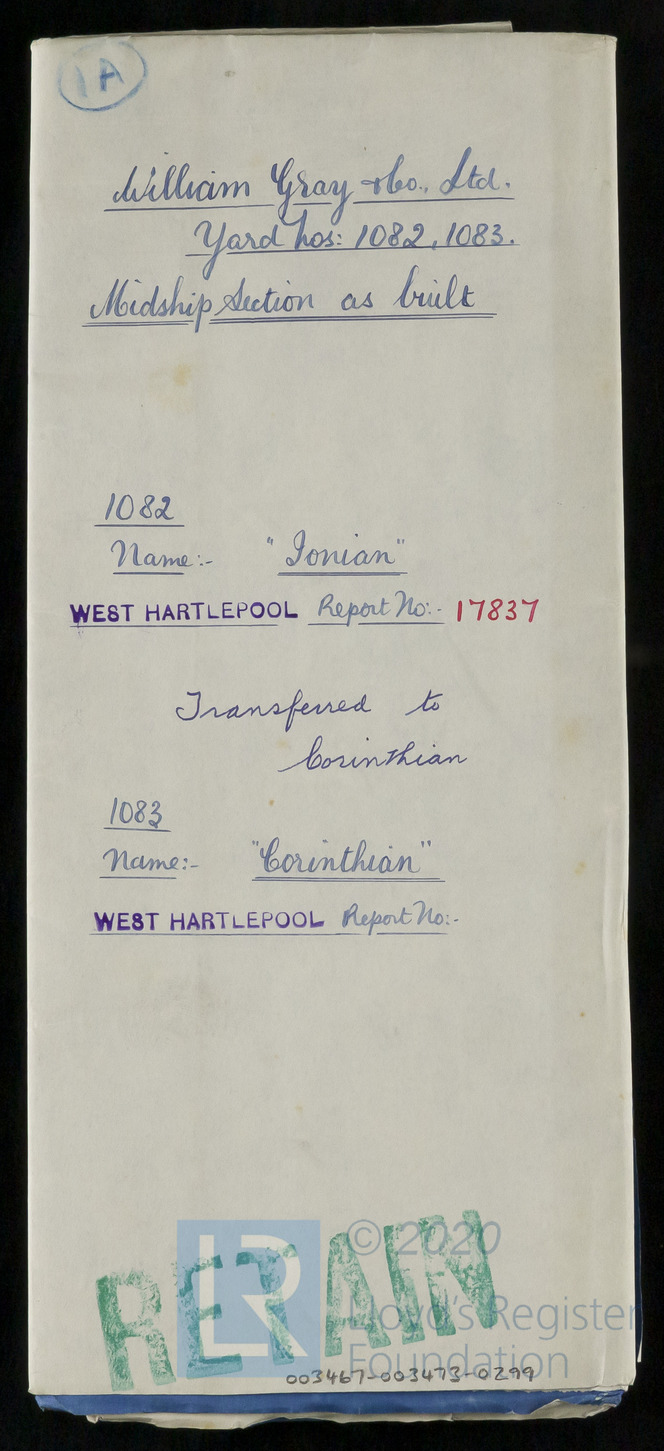 1A
William Gray & Co., Ltd.
Yard Nos: 1082, 1083.
Midship Section as built
1082
Name:- "Ionian"
WEST HARTLEPOOL Report No:- 17837
Transferred to
Corinthian
1083
Name:- "Corinthian"
WEST HARTLEPOOL Report No:-
RETAIN
LR
© 2020
Lloyd's Register
Foundation
003467-003473-0299